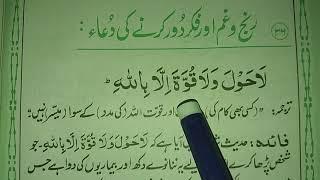 رنج و غم اور فکر دور کرنے کی دعاء :
لَاحَوْلَ وَلَا قُوَّةَ اِلَّا بِاللّٰهِ ط
ترجمہ: (کسی بھی کام کی اور قوت اللہ (کی مدد) کے سوا میسر نہیں۔
فائدہ: حدیث میں آیا ہے کہ لَاحَوْلَ وَلَا قُوَّةَ اِلَّا بِاللّٰهِ۔ جو
شخص پڑھا کرے ننانوے دکھ اور بیماریوں کی دوا ہے جس